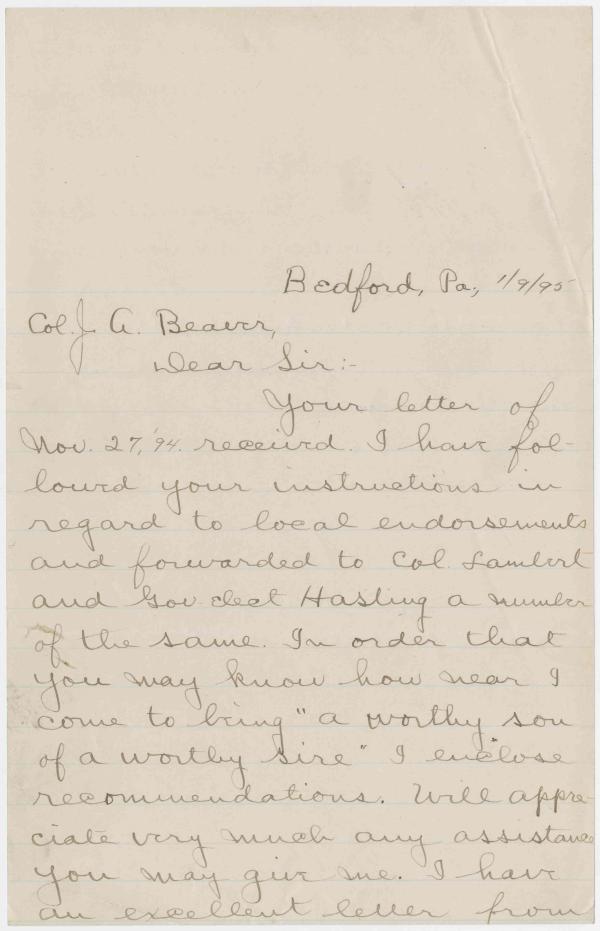 Bedford, Pa., 1/9/95
Col. J. A. Beaver,
Dear Sir:-
Your letter of
Nov. 27, '94. received. I have fol-
lowed your instructions in
regard to local endorsements
and forwarded to Col. Lambert
and Gov-elect Hasting a number
of the same. In order that
you may know how near I
come to being "a worthy son
of a worthy sire" I enclose
recommendations. Will appre-
ciate very much any assistance
you may give me. I have
an excellent letter from